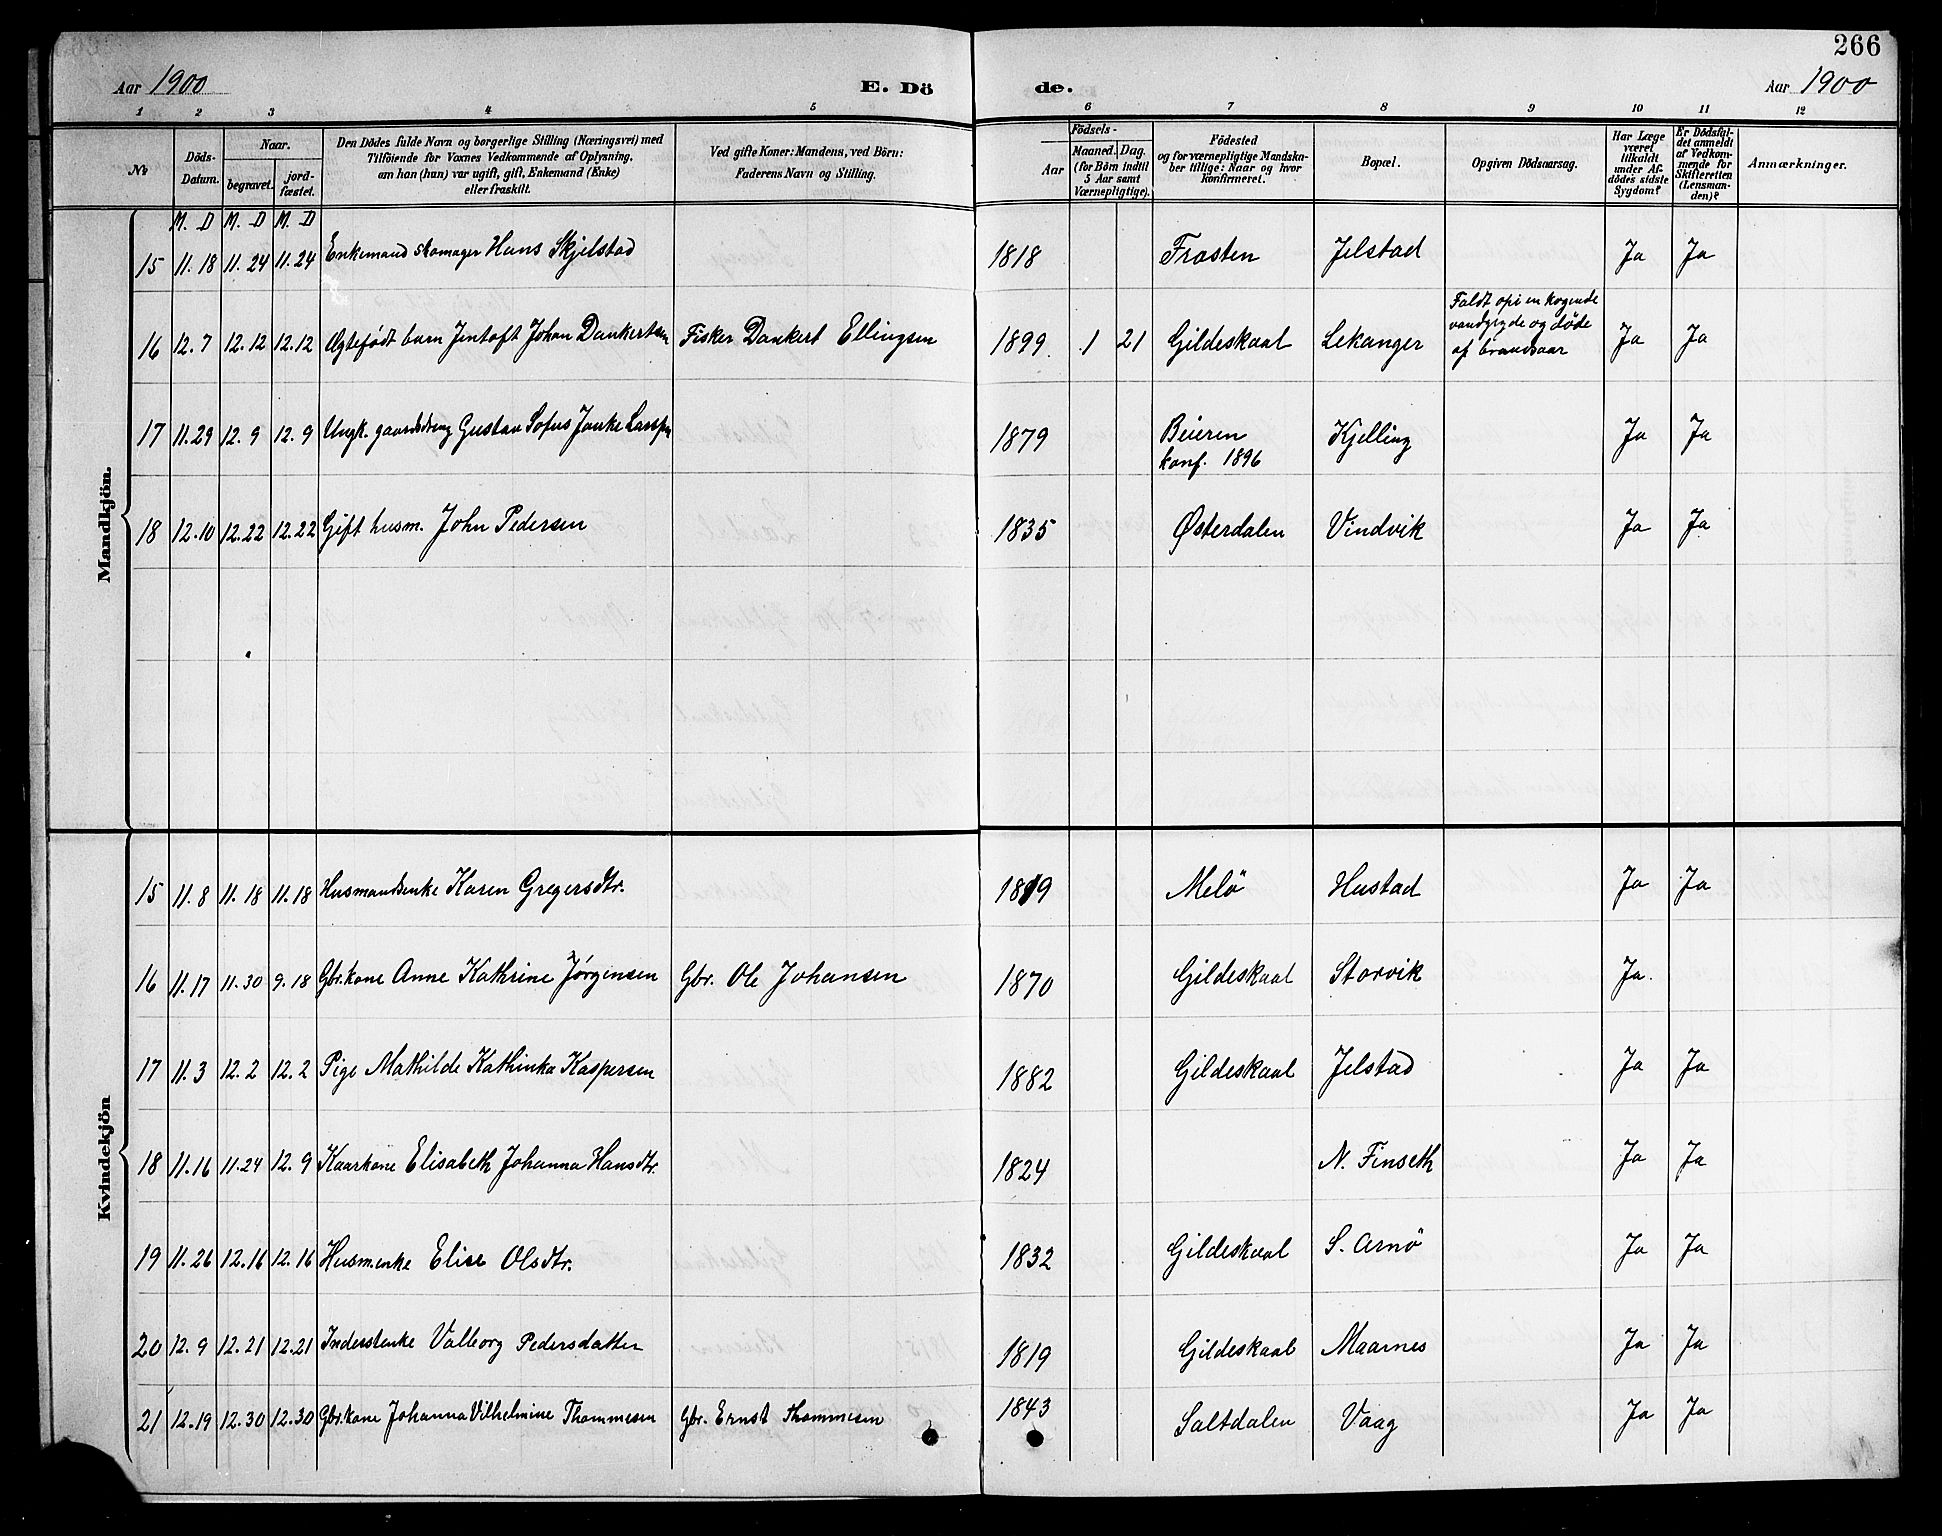 266
Aar 1900 E. Dö de. Aar 1900
1 2 3 4 5 6 7 8 9 10 11 12
No
Döds-Datum.
Naar.
begravet.
jord-fæstet.
Den Dödes fulde Navn og borgerlige Stilling (Næringsvei) med
Tilföiende for Voxnes Vedkommende af Oplysning,
om han (hun) var ugift, gift, Enkemand (Enke)
eller fraskilt.
Ved gifte Koner: Mandens, ved Börn:
Faderens Navn og Stilling.
Födsels-
Aar
Maaned. Dag.
(for Börn indtil
5 Aar samt
Værnepligtige).
Födested
og for værnepligtige Mandska-
ber tillige: Naar og hvor
konfirmeret.
Bopæl.
Opgiven Dödsaarsag.
Har Læge
været
tilkaldt
under Af-
dödes sidste
Sygdom?
Er Dödsfal-
det anmeldt
af Vedkom-
mende for
Skifteretten
(Lensman-
den)?
Anmærkninger.
Mandkjön.
M. D M. D M. D
15 11.18 11.24 11.24 Enkemand skomager Hans Skjelstad 1818 Frosten Jelstad Ja Ja
16 12.7 12.12 12.12 Ægtefödt barn Jentoft Johan Dankertsen Fisker Dankert Ellingsen 1899 1 21 Gildeskaal Lekanger Faldt opi en kogende
vandgryde og döde
af brandsaar Ja Ja
17 11.29 12.9 12.9 Ungk. gaardsdreng Gustav Sofus Larssen 1879 Beieren
konf. 1896 Kjelling Ja Ja
18 12.10 12.22 12.22 Gift husm. John Pedersen 1835 Østerdalen Vindvik Ja Ja
Kvindekjön
15 11.8 11.18 11.18 Husmandsenke Karen Gregersdtr. 1819 Melö Hustad Ja Ja
16 11.17 11.30 9.18 Gbr.kone Anne Kathrine Jørgensen Gbr. Ole Johansen 1870 Gildeskaal Storvik Ja.
17 11.3 12.2 12.2 Pige Mathilde Kathinka Kaspersen 1882 Gildeskaal Jelstad Ja Ja
18 11.16 11.24 12.9 Kaarkone Elisabeth Johanna Hansdtr. 1824 N. Finseth Ja Ja
19 11.26 12.16 12.16 Husm.enke Elise Olsdtr. 1832 Gildeskaal S. Arnö Ja Ja
20 12.9 12.21 12.21 Inderstenke Valborg Pedersdatter 1819 Gildeskaal Maarnes Ja Ja
21 12.19 12.30 12.30 Gbr.kone Johanna Vilhelmine Thommesen Gbr. Ernst Thommesen 1843 Saltdalen Vaag Ja Ja